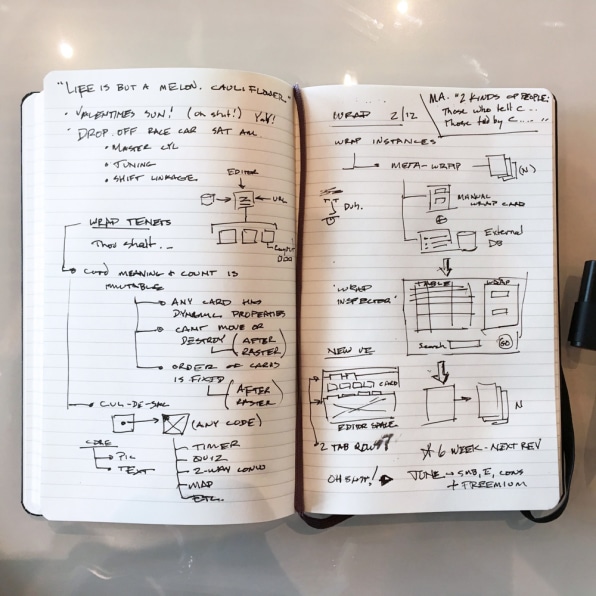 "LIFE IS BUT A MELON. CAULIFLOWER."
• VALENTINES SUN! (oh shit!) YAY!
• DROP OFF RACE CAR SAT AM.
• MASTER CYL
• TUNING
• SHIFT LINKAGE
EDITOR
URL
WRAP TENETS
Thou shalt...
CARD MEANING + COUNT IS
IMMUTABLE
ANY CARD HAS
DYNAMIC PROPERTIES
CANT MOVE OR
DESTROY (AFTER
RASTER)
ORDER OF CARDS
IS FIXED (AFTER
RASTER)
CUL-DE-SAC
(ANY CODE)
CORE
PIC
TEXT
TIMER
QUIZ
2-WAY CONVO
MAP
ETC.
WRAP 2/12
MA. "2 KINDS OF PEOPLE:
Those who tell C...
Those told by C....."
WRAP INSTANCES
META-WRAP (N)
Duh.
MANUAL
WRAP CARD
External
DB
'WRAP
INSPECTOR'
TABLE
WRAP
Search
GO
NEW UI
CARD
EDITOR SPACE
N
2 TAB
6 WEEK - NEXT REV
OH SHIT!
JUNE SMB, E, CONS
+ FREEMIUM